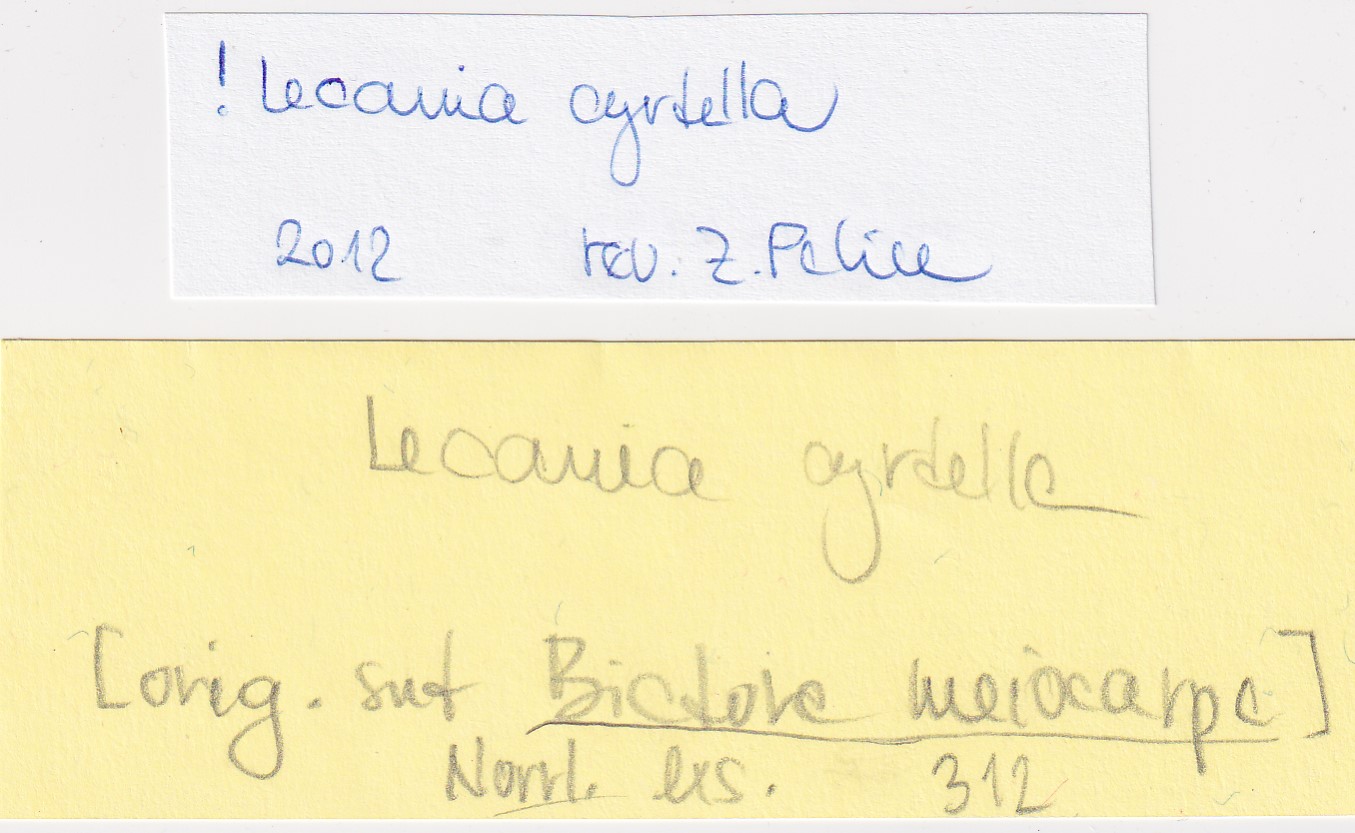 ! Lecania cyrtella
2012 rev. Z. Palice
Lecania cyrtella
[orig. sub Biatora meiocarpa]
Norrl. exs. 312